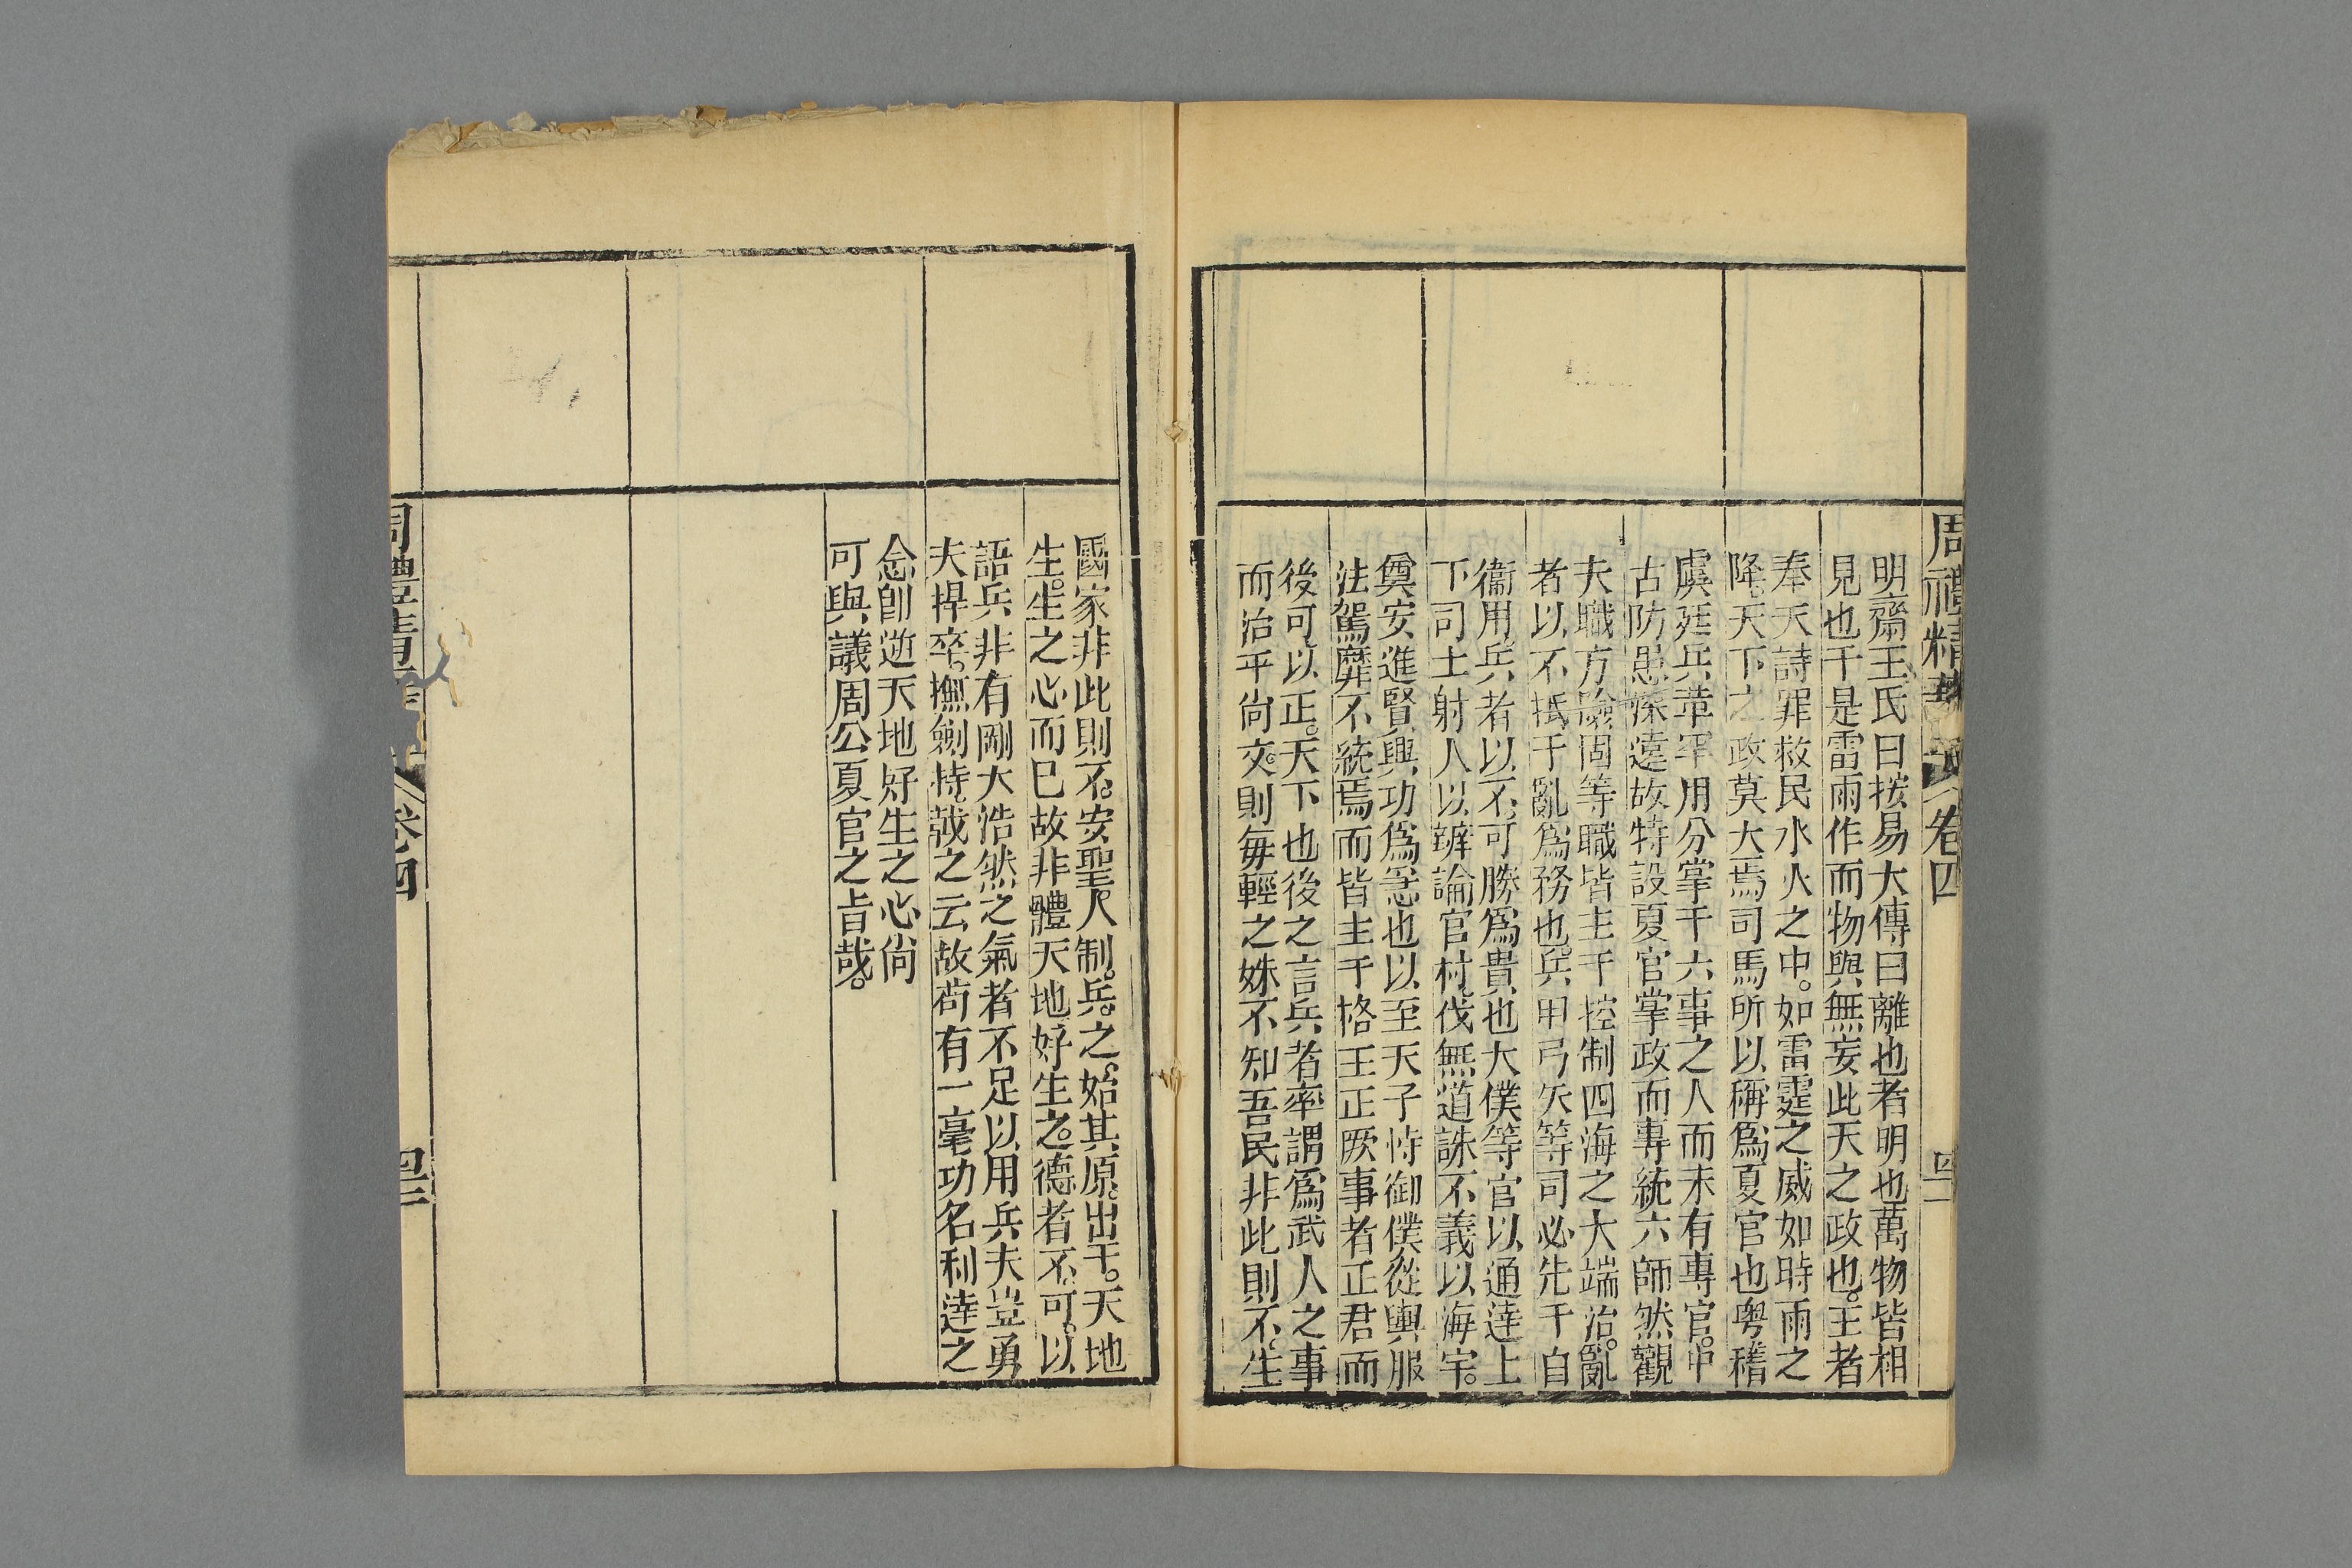 周禮精華 卷四
明齋王氏曰按易大傳曰離也者明也萬物皆相
見也于是雷雨作而物與無妄此天之政也。王者
奉天詩罪救民水火之中。如雷霆之威如時雨之
降。天下之政莫大焉司馬所以稱爲夏官也粤稽
虞廷兵㓝罕用分掌于六事之人而未有專官。中
古防患深遠故特設夏官掌政而專統六師然觀
夫職方險固等職皆主于控制四海之大端治。亂
者以不抵于亂爲務也。兵甲弓矢等司必先于自
衞用兵者以不可勝爲貴也大僕等官以通達上
下司士射人以辨論官材。伐無道誅不義以海宇。
奠安進賢興功爲急也以至天子恃御僕從輿服
法駕靡不統焉而皆主于格王正厥事者正君而
後可以正。天下也後之言兵者率謂爲武人之事
而治平尙文。則毎輕之姝不知吾民非此則不。生
國家非此則不。安聖人制。兵。之始其原。出于。天地
生。生之心而已故非體天地好生之。德者不可。以
語兵非有剛大浩然之氣者不足以用兵夫豈勇
夫捍卒。撫劍持㦸之云故苟有一毫功名利達之
念卽逆天地好生之心尙
可與議周公夏官之旨哉。
卷四